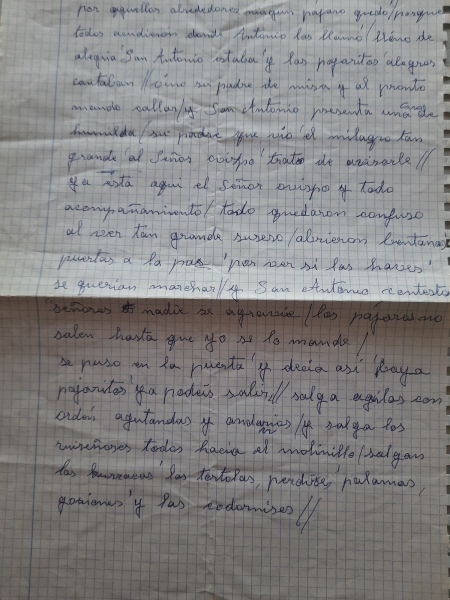 por aquellos alrededores ningun pajaro quedo/porque
todos acudieron donde Antonio los llamo/lleno de
alegria San Antonio estaba y los pajaritos alegres
cantaban//vino su padre de misa y al pronto
mando callar/y San Antonio presenta una cara de
humilda/su padre que vio el milagro tan
grande al Señor ovispo trato de avisarle//
ya está aqui el Señor ovispo y todo
acompañamiento/todo quedaron confuso
al ver tan grande suseso/abrieron bentanas
puertas a la pas por ver si las haves
se querian marchar//y San Antonio contesto
señores nadie se agravie/los pajaros no
salen hasta que yo se lo mande/
se puso en la puerta y decia asi baya
pajaritos ya podeis salir//salga agilas con
orden agutandas y andarios/y salga los
ruiseñores todos hacia el molinillo/salgan
las burracas las tortolas, perdises, palamas,
goriones y las codornises//